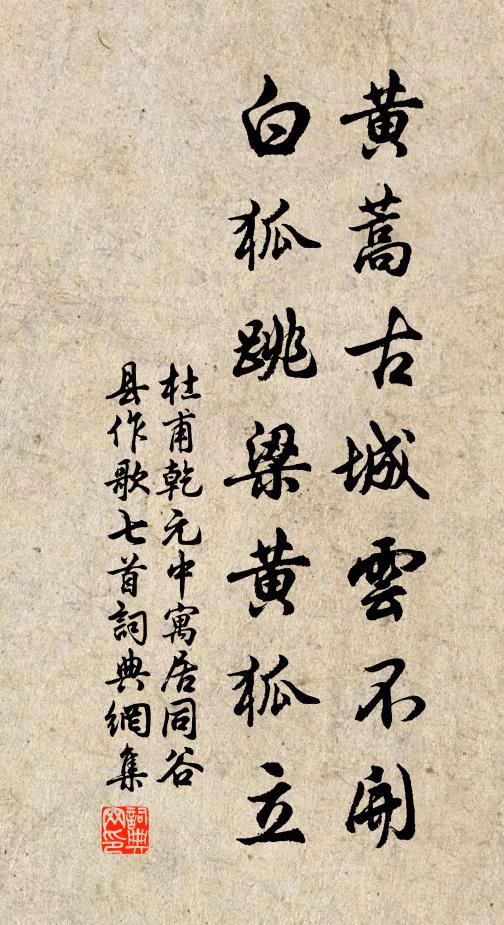 黄蒿古城雲不開
白狐跳梁黄狐立
杜甫乾元中寓居同谷
县作歌七首詞典網集
詞典
网印